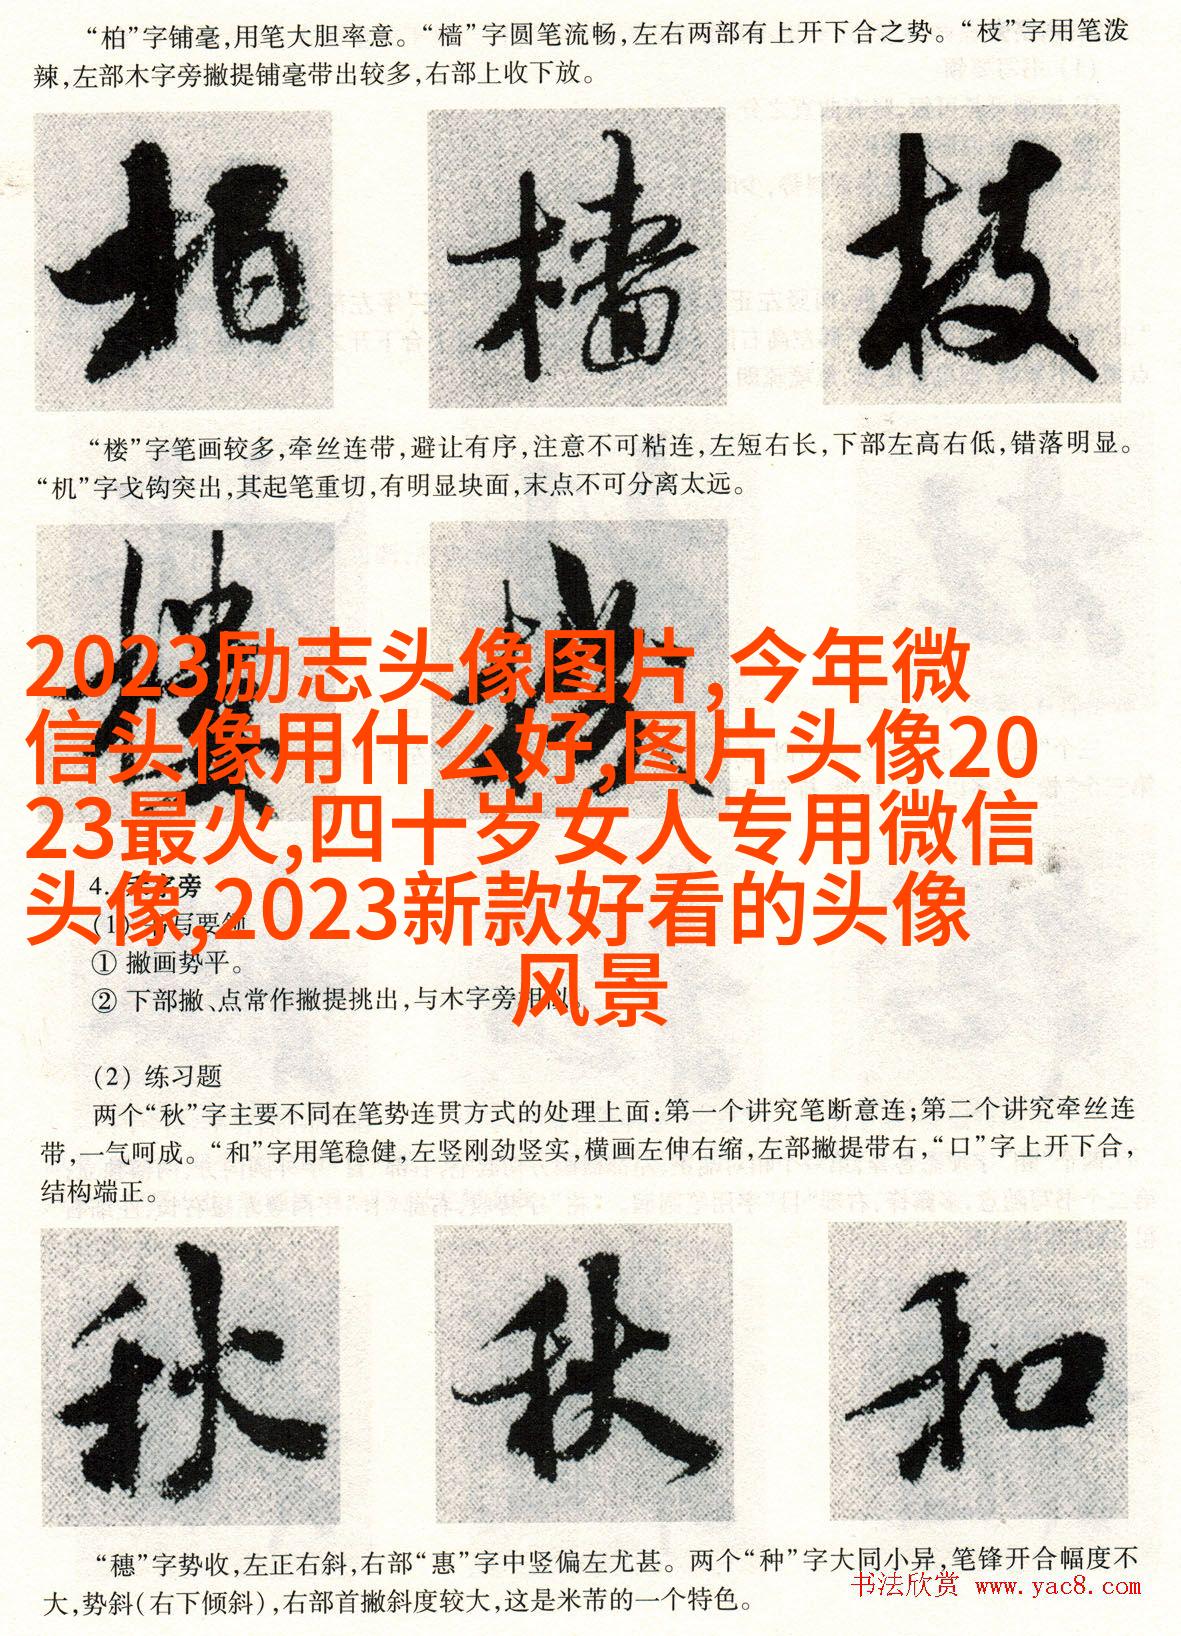 “柏”字铺毫,用笔大胆率意。“樯”字圆笔流畅,左右两部有上开下合之势。“枝”字用笔泼
辣,左部木字旁撇提铺毫带出较多,右部上收下放。
柏 樯 枝
“楼”字笔画较多,牵丝连带,避让有序,注意不可粘连,左短右长,下部左高右低,错落明显。
“机”字戈钩突出,其起笔重切,有明显块面,末点不可分离太远。
2023励志头像图片,今年微
信头像用什么好,图片头像20
23最火,四十岁女人专用微信
头像,2023新款好看的头像
风景
4. 禾字旁
(1) 书写要领
① 撇画势平。
② 下部撇、点常作撇提挑出,与木字旁相似。
(2) 练习题
两个“秋”字主要不同在笔势连贯方式的处理上面:第一个讲究笔断意连;第二个讲究牵丝连
带,一气呵成。“和”字用笔稳健,左竖刚劲竖实,横画左伸右缩,左部撇提带右,“口”字上开下合,
结构端正。
秋 秋 和
“穗”字势收,左正右斜,右部“惠”字中竖偏左尤甚。两个“种”字大同小异,笔锋开合幅度不
大,势斜(右下倾斜),右部首撇斜度较大,这是米芾的一个特色。
书法欣赏 www.yac8.com